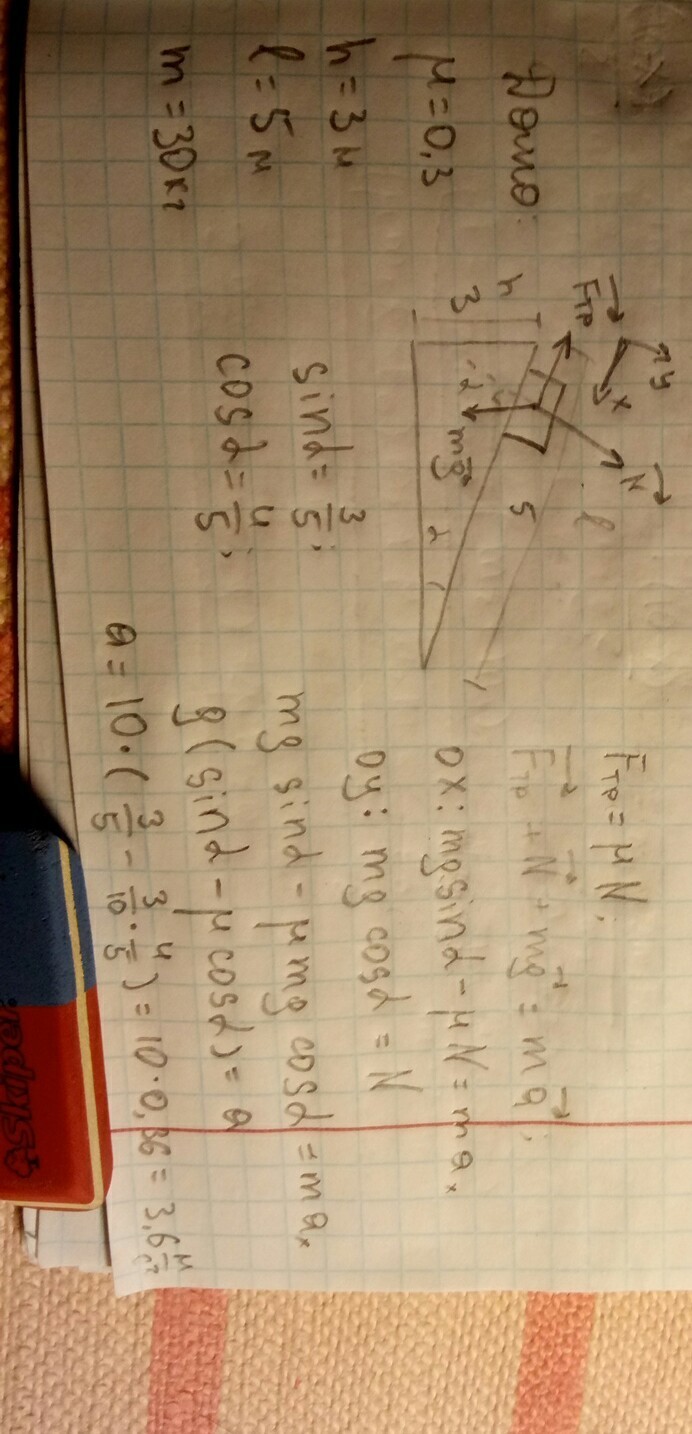 Дано:
μ = 0,3
h = 3 м
l = 5 м
m = 30 кг
y
x
Fтр
N
h
3
α
mg
5
l
α
sinα = 3/5;
cosα = 4/5;
Fтр = μN;
Fтр + N + mg = ma;
ox: mg sinα - μN = maₓ
oy: mg cosα = N
mg sinα - μmg cosα = maₓ
g(sinα - μcosα) = a
a = 10·(3/5 - 3/10·4/5) = 10·0,36 = 3,6 м/с²